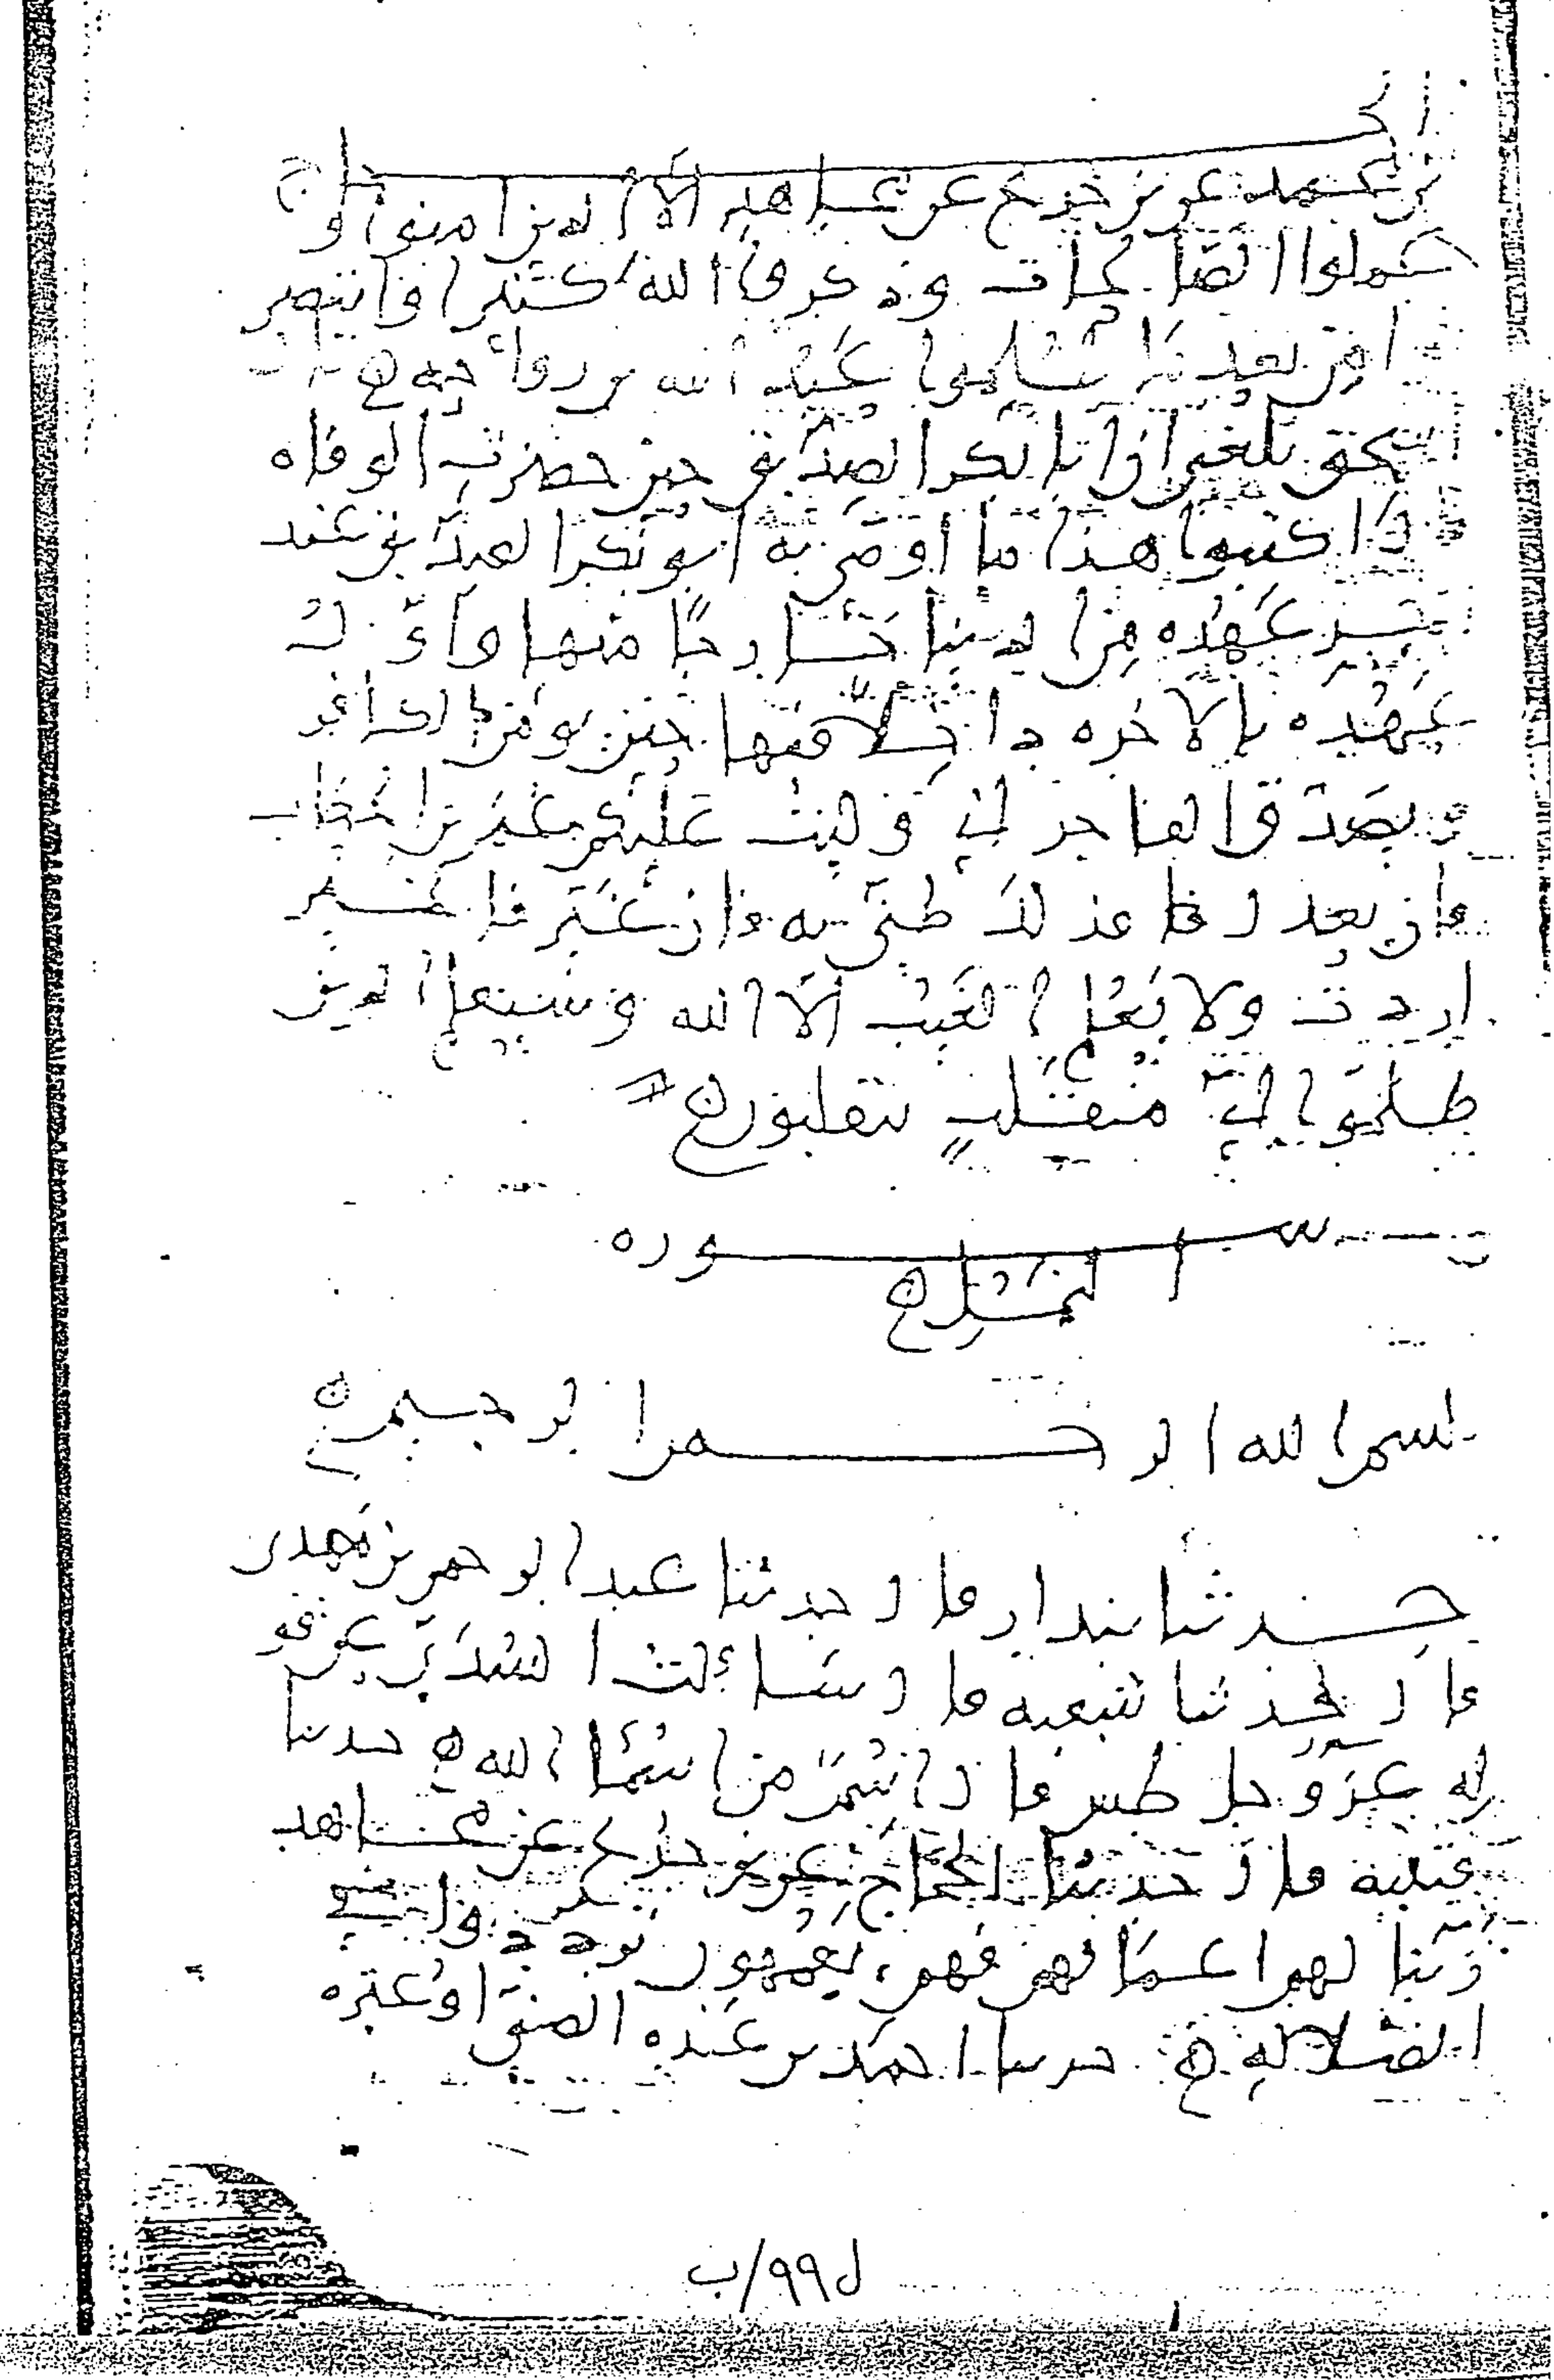 الحجاج
بن محمد عن بن جريج عن مجاهد الا الذين امنوا و
عملوا الصالحات وذكروا الله كثيرا وانتصر
وا من بعد ما ظلموا عبد الله بن رواحه
بلغني ان ابا بكر الصديق حين حضرته الوفاه
قال اكتبوا هذا ما أوصى به ابو بكر الصديق عند
عهده من الدنيا خارجا منها واول
عهده بالاخره داخلا فيها حين يومن الكافر
ويصدق الفاجر اني وليت عليكم عمر بن الخطاب
فان يعدل فذلك ظني به وان غير فالخير
اردت ولا يعلم الغيب الا الله وسيعلم الذين
ظلموا اي منقلب ينقلبون
ســـورة
النمل
بسم الله الرحمن الرحيم
حدثنا بندار قال حدثنا عبد الرحمن بن مهدى
قال حدثنا شعبه قال سالت السدي عن قو
له عز وجل طس قال اسم من اسما الله حدثنا
قتيبه قال حدثنا الحجاج عن بن جريج عن مجاهد
زينا لهم اعمالهم فهم يعمهون تردد وا في
الضلاله حدثنا احمد بن عبده الضبي او غيره
ل ٩٩/ب